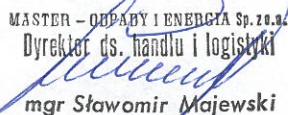 MASTER – ODPADY I ENERGIA Sp. z o.o.
Dyrektor ds. handlu i logistyki
mgr Sławomir Majewski